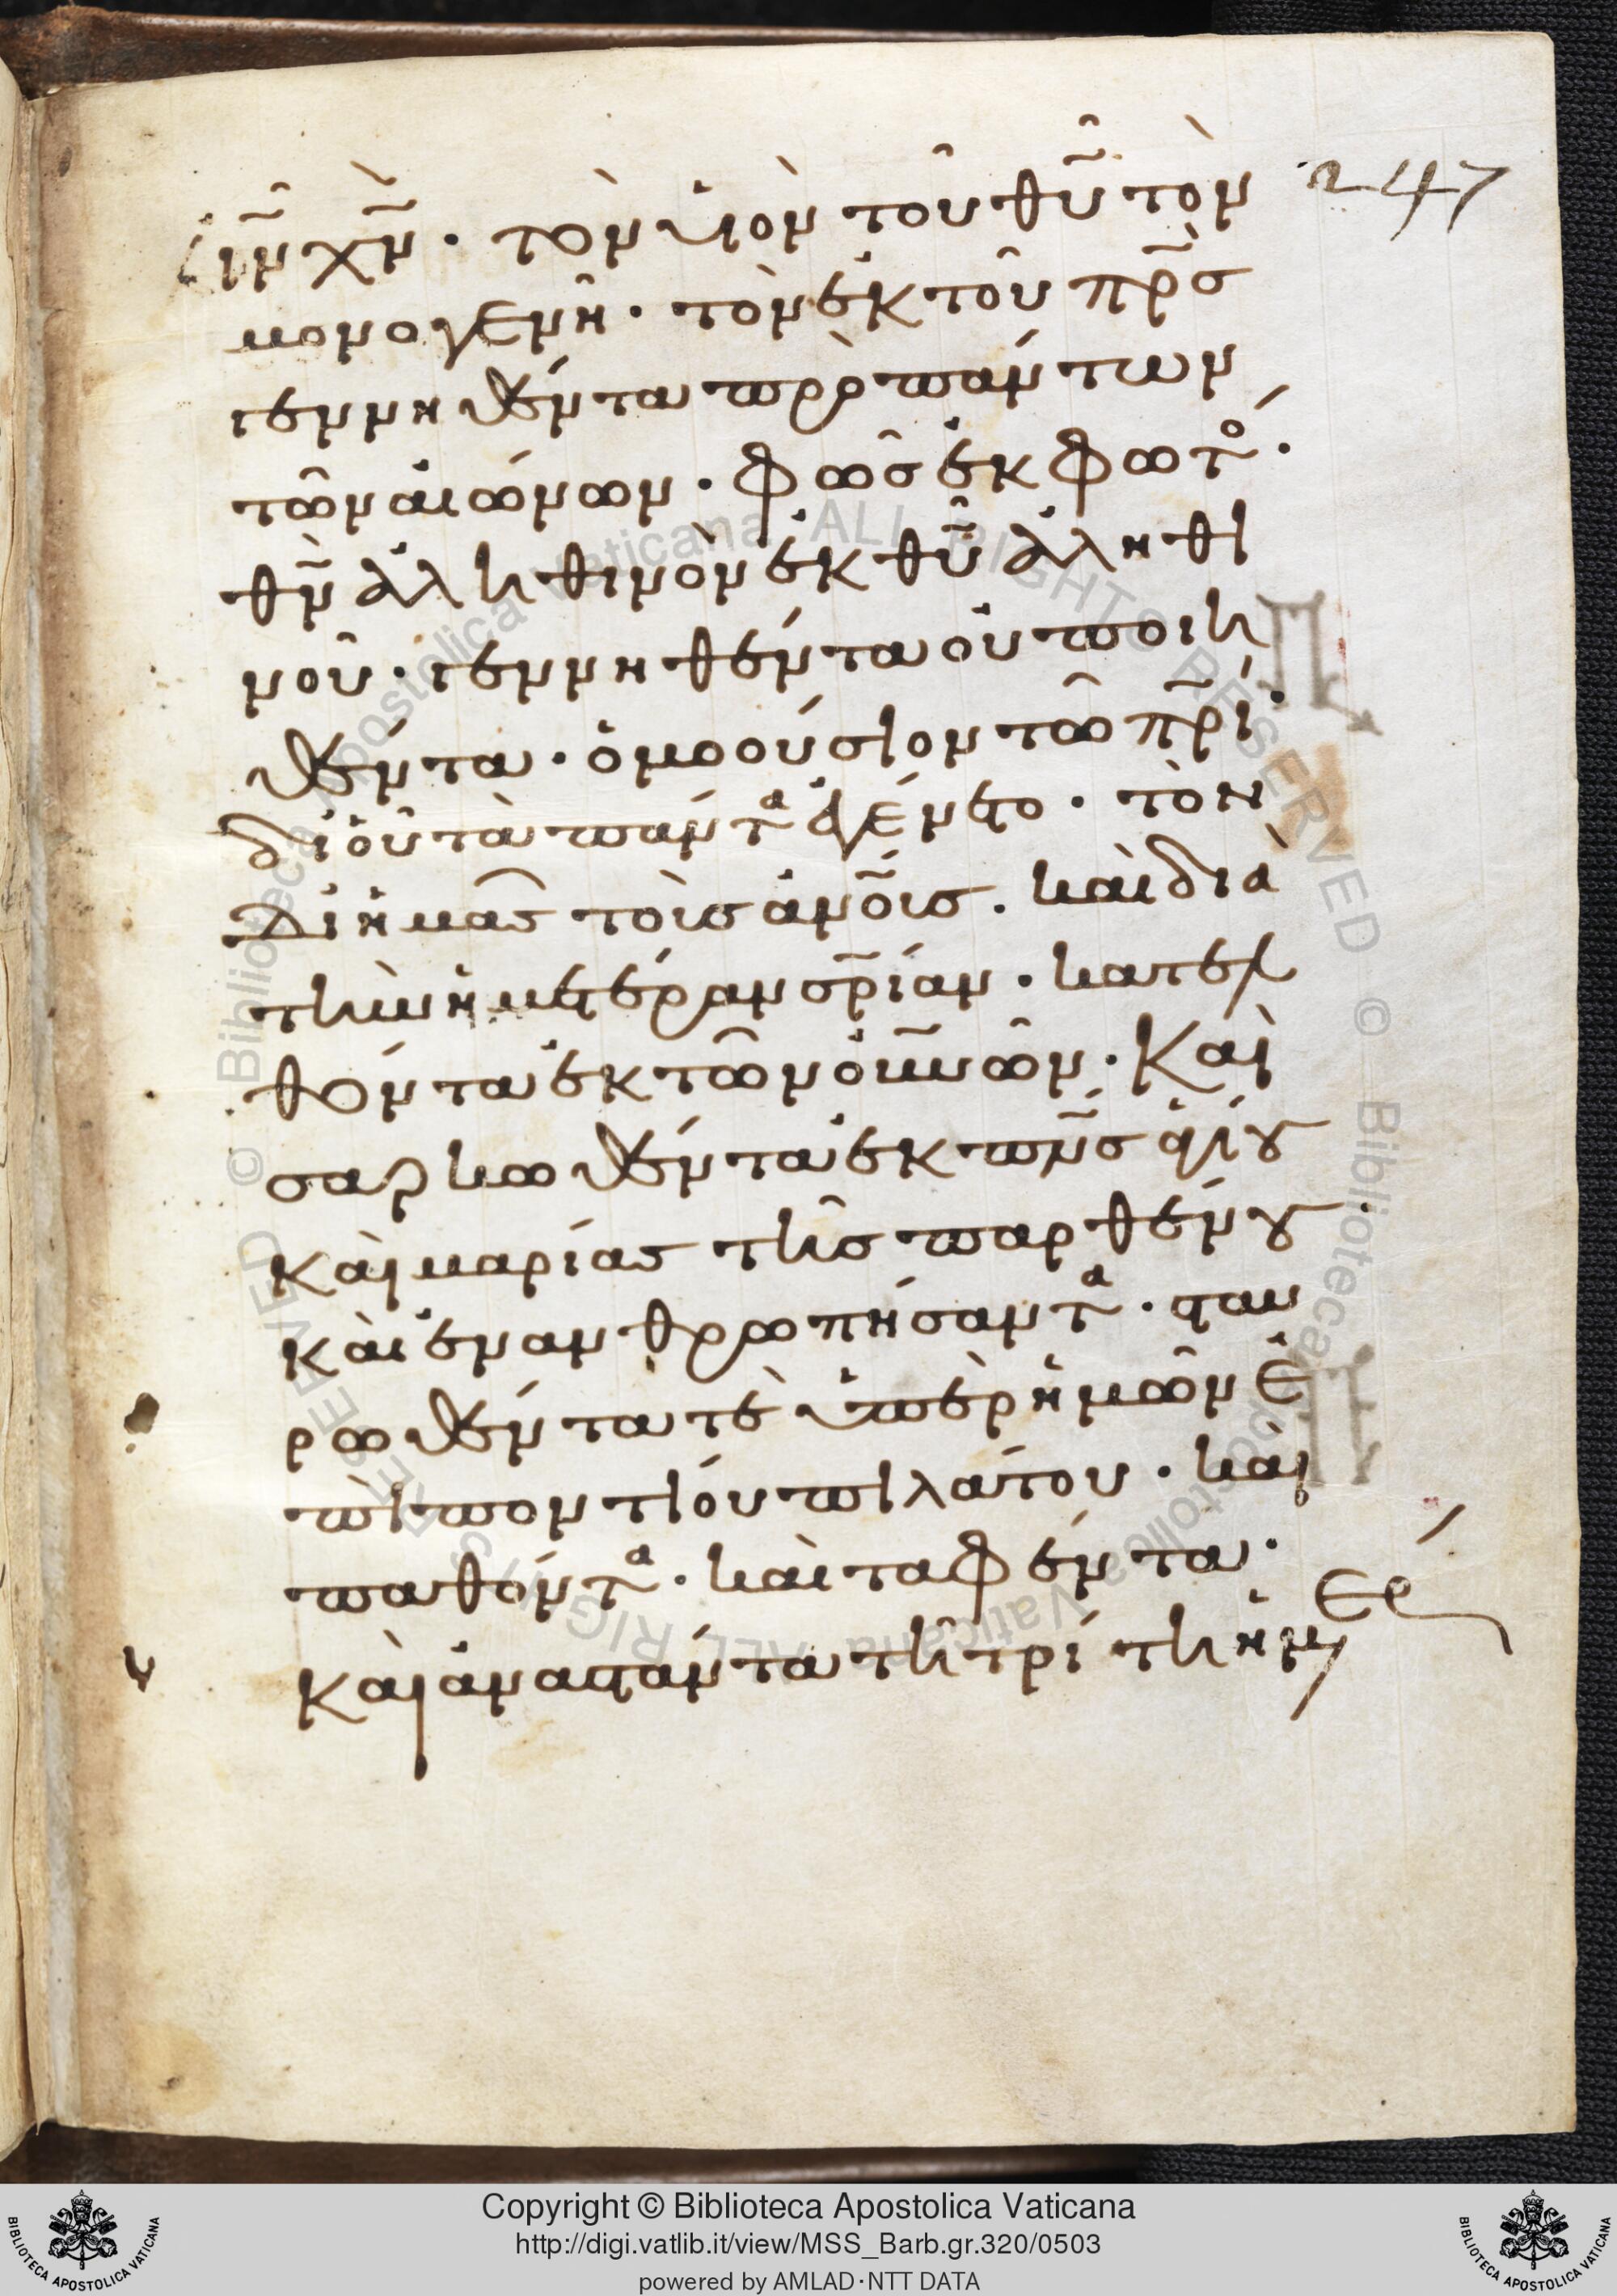 247
ιν̃ χν̃· τὸν υἱὸν τοῦ θυ̃ τὸν
μονογενῆ· τὸν ἐκ τοῦ πρ̃σ
γεννηθέντα πρὸ πάντων
τῶν αἰώνων· φῶσ ἐκ φωτο·
θν̃ ἀληθινὸν ἐκ θυ̃ ἀληθι
νοῦ· γεννηθέντα οὐ ποιη
θέντα· ὁμοούσιον τῶ πρ̃ί·
δι οὗ τὰ πάντα ἐγένετο· τὸν
δι ἡμᾶσ τοὺσ ἀνο̃υσ· καὶ διὰ
τὴν ἡμετέραν σρ̃ίαν· κατελ
θόντα ἐκ τῶν ου̃νων· Καὶ
σαρκωθέντα ἐκ πν̃σ ἁγίου
καὶ μαρίασ τῆσ παρθένου·
καὶ ἐνανθρωπήσαντα· σταυ
ρωθέντα τὲ ὑπὲρ ἡμῶν ἐ
πὶ ποντίου πιλάτου· καὶ
παθόντα· καὶ ταφέντα·
καὶ ἀναστάντα τῆ τρίτη ἡμ
ερ
Copyright © Biblioteca Apostolica Vaticana
http://digi.vatlib.it/view/MSS_Barb.gr.320/0503
powered by AMLAD·NTT DATA
BIBLIOTECA APOSTOLICA VATICANA
BIBLIOTECA APOSTOLICA VATICANA